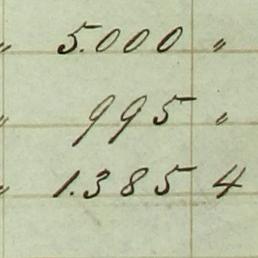 " 5.000 "
" 995 "
" 1.385 4